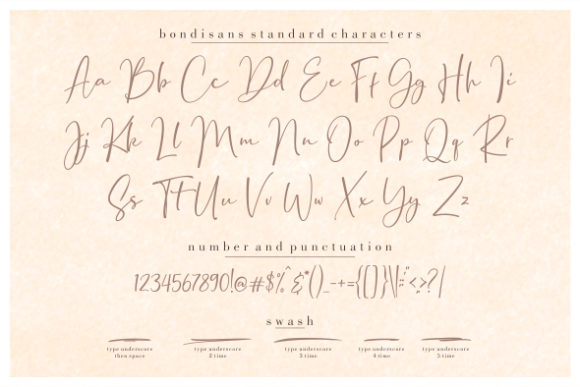 bondisans standard characters
Aa Bb Cc Dd Ee Ff Gg Hh Ii
Jj Kk Ll Mm Nn Oo Pp Qq Rr
Ss Tt Uu Vv Ww Xx Yy Zz
number and punctuation
1234567890!@#$%^&*()_-+={[]}\|:;"'<,>.?/|
swash
type underscore then space
type underscore 2 time
type underscore 3 time
type underscore 4 time
type underscore 5 time